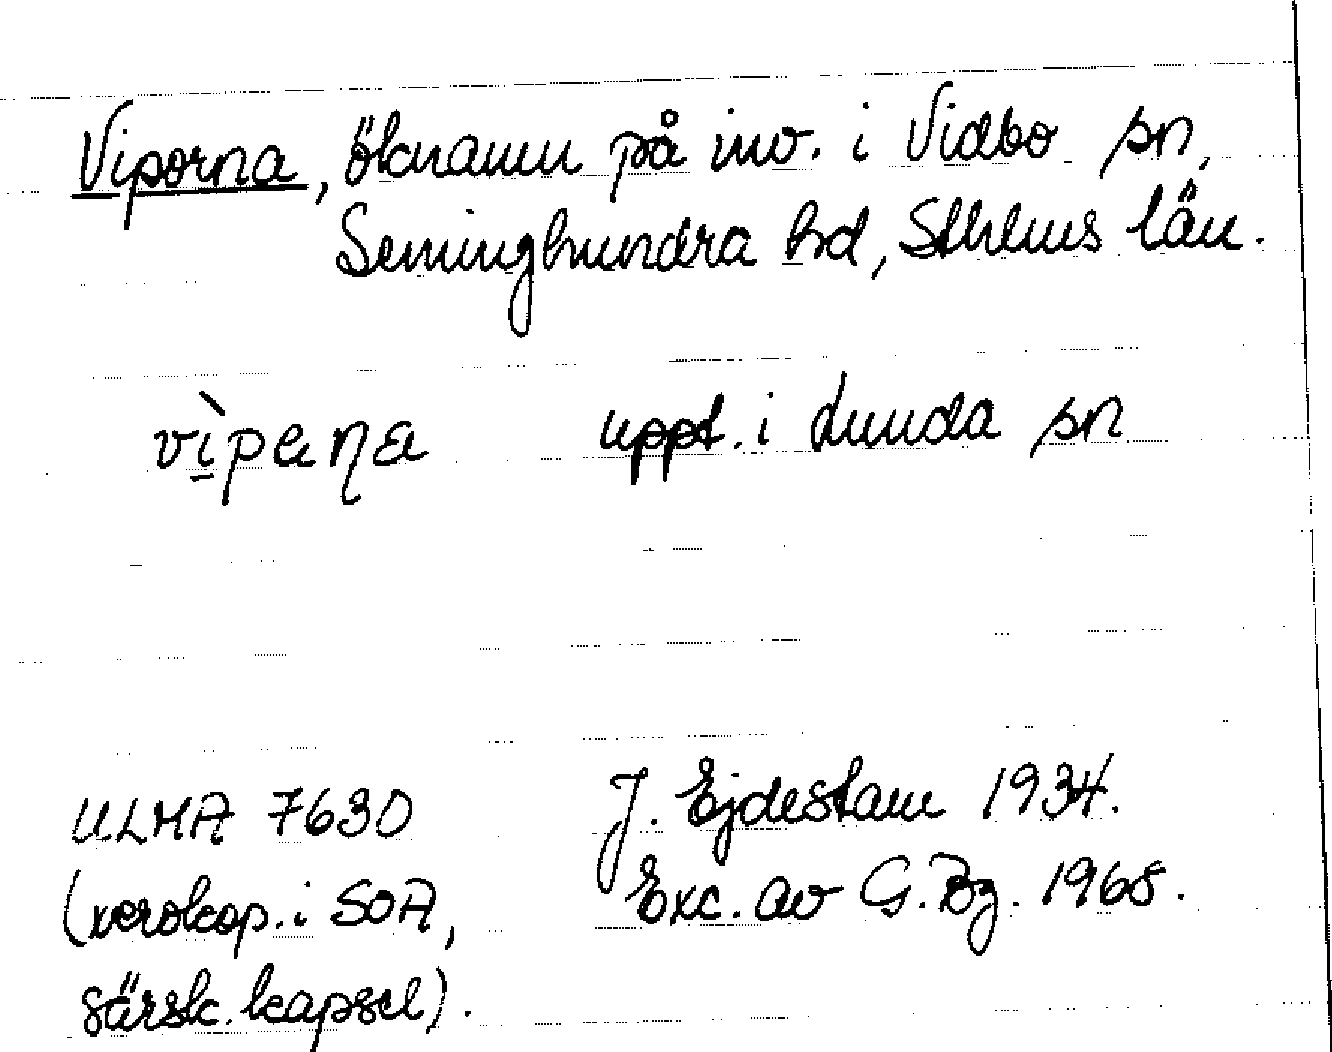 Viporna, öknamn på inv. i Vidbo sn,
Seminghundra hd, Sthlms län.
vìpaṇa uppt. i Lunda sn
ULMA 7630 J. Ejdestam 1934.
(xerokop. i SOA, Exc. av G. Bg. 1968.
särsk. kapsel).